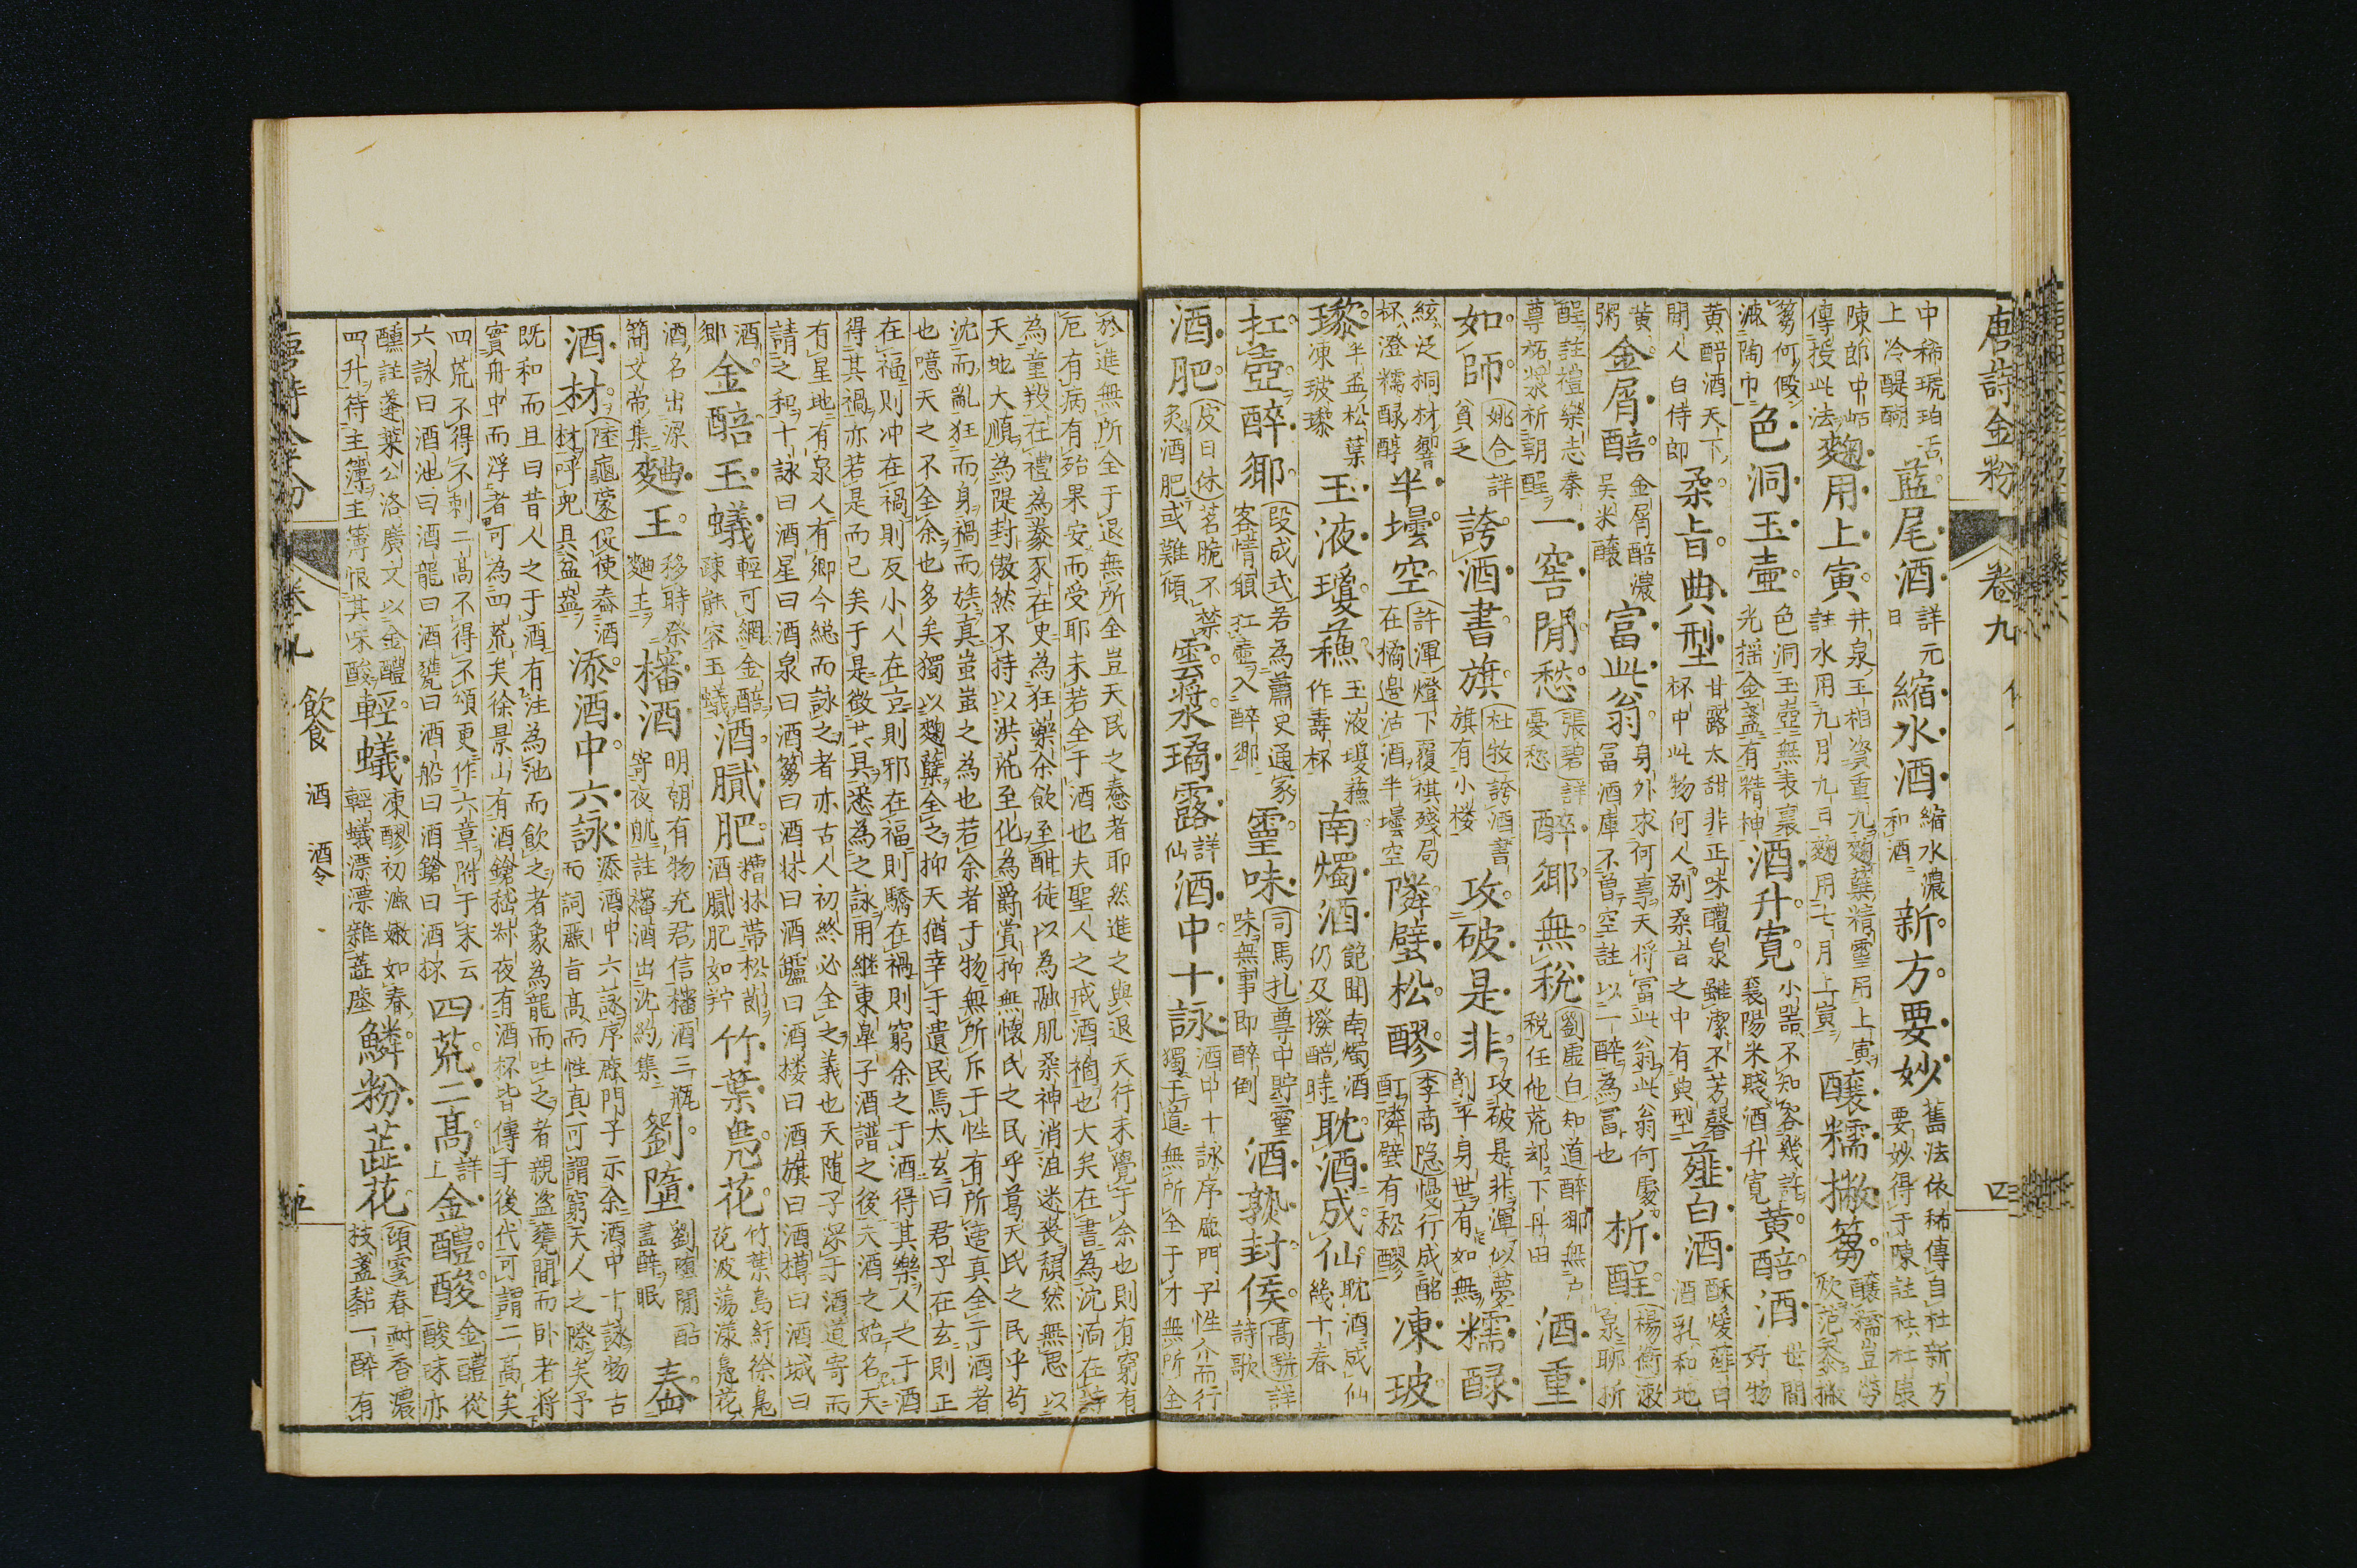 唐詩金粉 卷九 四
中稀琥珀舌
上冷醍醐
藍尾酒 詳元
日
縮水酒 縮水濃
和酒
新方要妙 舊法依稀傳自杜新方
要妙得于陳註杜杜康
陳陳郎中岵
傳授此法
麹用上寅 井泉玉相資重九麹糵精靈用上寅
註水用九月九日麹用七月上寅
醸糯撇篘 醸糯豈勞
炊范黍撇
篘何假
漉陶巾
色洞玉壺 色洞玉壺無表裏
光揺金盞有精神
酒升寛 小器不知客幾許
襄陽米賤酒升寛
黄醅酒 世間好物
黄醅酒天下
閒人白侍郎
柔旨典型 甘露太甜非正味醴泉雖潔不芳馨
杯中此物何人別柔旨之中有典型
薤白酒 酥煖薤白
酒乳和地
黄
粥
金屑醅 金屑醅濃
吴米醸
富此翁 身外求何事天将富此翁此翁何處
冨酒庫不曽空註以一酔為冨也
析酲 楊衡漱
泉聊析
酲註禮樂志泰
尊柘漿析朝酲
一窖閒愁 張碧詳
憂愁
酔郷無税 劉虚白知道酔郷無戸
税任他荒郊下丹田
酒重
如師 姚合詳
貧乏
誇酒書旗 杜牧誇酒書
旗有小楼
攻破是非 攻破是非渾似夢
削平身世有如無
糯醁
絃泛桐材響
杯澄糯醁醇
半壜空 許渾燈下覆棋殘局
在橘邊沽酒半壜空
隣壁松醪 李商隠慢行成酩
酊隣壁有松醪
凍玻
瓈 半盃松葉
凍玻瓈
玉液瓊蘓 玉液瓊蘓
作壽杯
南燭酒 飽聞南燭酒
仍及撥醅時
耽酒成仙 耽酒成仙
幾十春
扛壺酔郷 段成式若為蕭史通家
客情願扛壺入酔郷
靈味 司馬扎尊中貯靈
味無事即酔倒
酒熟封侯 髙駢詳
詩歌
酒肥 皮日休茗脆不禁
炙酒肥或難傾
雲漿璚露 詳
仙
酒中十詠 酒中十詠序鹿門子性介而行
獨于道無所全于才無所全
於進無所全于退無所全豈天民之惷者耶然進之與退天行未覺于余也則有窮有
厄有病有殆果安而受耶未若全于酒也夫聖人之戒酒禍也大矣在書為沈湎在詩
為童羖在禮為豢豕在史為狂藥余飲至酣徒以為融肌柔神消沮迷喪頽然無思以
天地大順為隄封傲然不持以洪荒至化為爵賞抑無懐氏之民乎葛天氏之民乎苟
沈而亂狂而身禍而族真蚩蚩之為也若余者于物無所斥于性有所適真全于酒者
也噫天之不全余也多矣獨以麹糵全之抑天猶幸于遺民焉太玄曰君子在玄則正
在福則冲在禍則反小人在玄則邪在福則驕在禍則窮余之于酒得其樂人之于酒
得其禍亦若是而已矣于是徴其具悉為之詠用継東皐子酒譜之後夫酒之始名天
有星地有泉人有郷今緫而詠之者亦古人初終必全之義也天随子深于酒道寄而
請之和十詠曰酒星曰酒泉曰酒篘曰酒牀曰酒罏曰酒楼曰酒旗曰酒樽曰酒城曰
酒
郷
金醅玉蟻 輕可網金醅
疎能容玉蟻
酒膩肥 糟牀帯松節
酒膩肥如羜
竹葉鳬花 竹葉島紆徐鳬
花波蕩漾鳬花
酒名出深
簡文帝集
麯王 移時祭
麯王
𤄜酒 明朝有物充君信𤄜酒三瓶
寄夜航註𤄜酒出沈約集
劉墮 劉墮閒酤
盡酔眠
舂
酒材 陸龜蒙促使舂酒
材呼児具盆盎
添酒中六詠 添酒中六詠序鹿門子示余酒中十詠物古
而詞麗旨髙而性真可謂窮天人之際矣予
既和而且曰昔人之于酒有注為池而飲之者象為龍而吐之者親盜甕間而卧者将
實舟中而浮者可為四荒矣徐景山有酒鎗嵇叔夜有酒杯皆傳于後代可謂二髙矣
四荒不得不刺二髙不得不頌更作六章附于末云
六詠曰酒池曰酒龍曰酒甕曰酒船曰酒鎗曰酒杯
四荒二髙 詳
上
金醴酸 金醴從
酸味亦
醺註蓬莱公洛廣文以金醴
四升待主簿主簿恨其味酸
輕蟻 凍醪初漉嫩如春
輕蟻漂漂雜蘂塵
鱗粉蘂花 頭雲春耐香濃
技蓋黏一酔有
唐詩金粉 卷九 飲食 酒 酒令 五